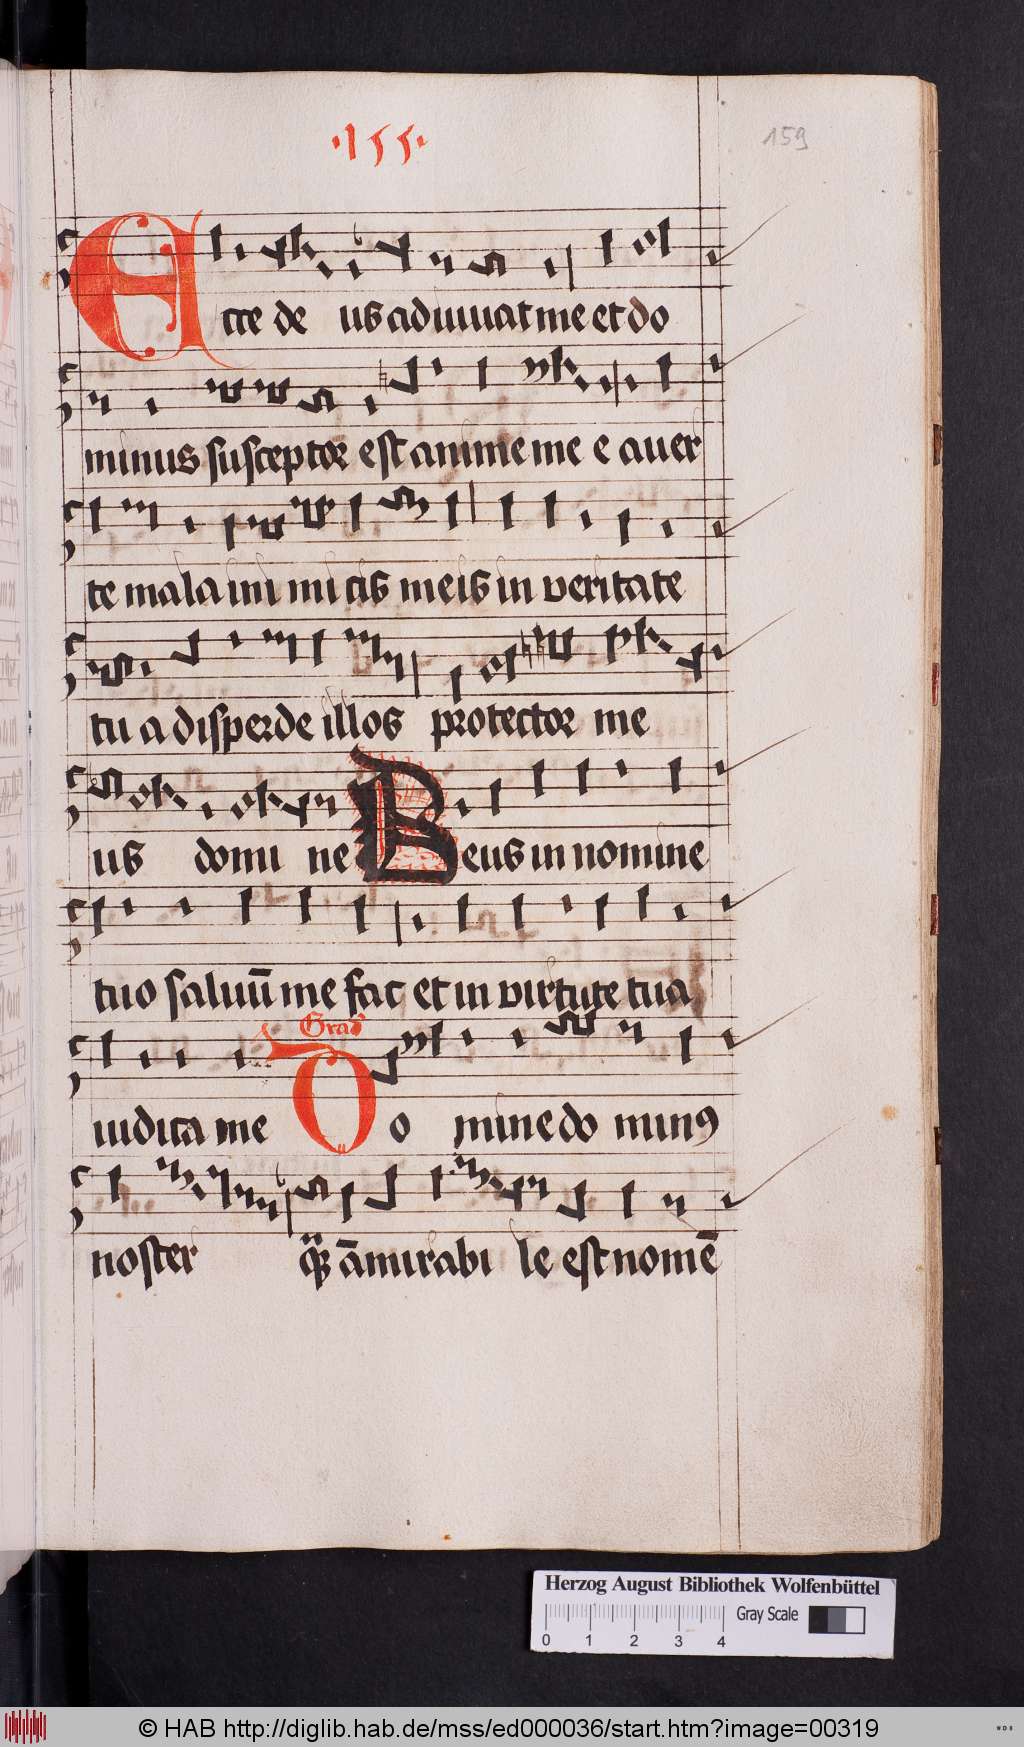 ·155·
159
Ecce de us adiuuat me et do
minus susceptor est anime me e auer
te mala ini mi cis meis in veritate
tu a disperde illos protector me
us domi ne Deus in nomine
tuo saluū me fac et in virtute tua
Grad
iudica me Do mine do minꝰ
noster ā mirabi le est nomē
Herzog August Bibliothek Wolfenbüttel
Gray Scale
0 1 2 3 4
© HAB http://diglib.hab.de/mss/ed000036/start.htm?image=00319